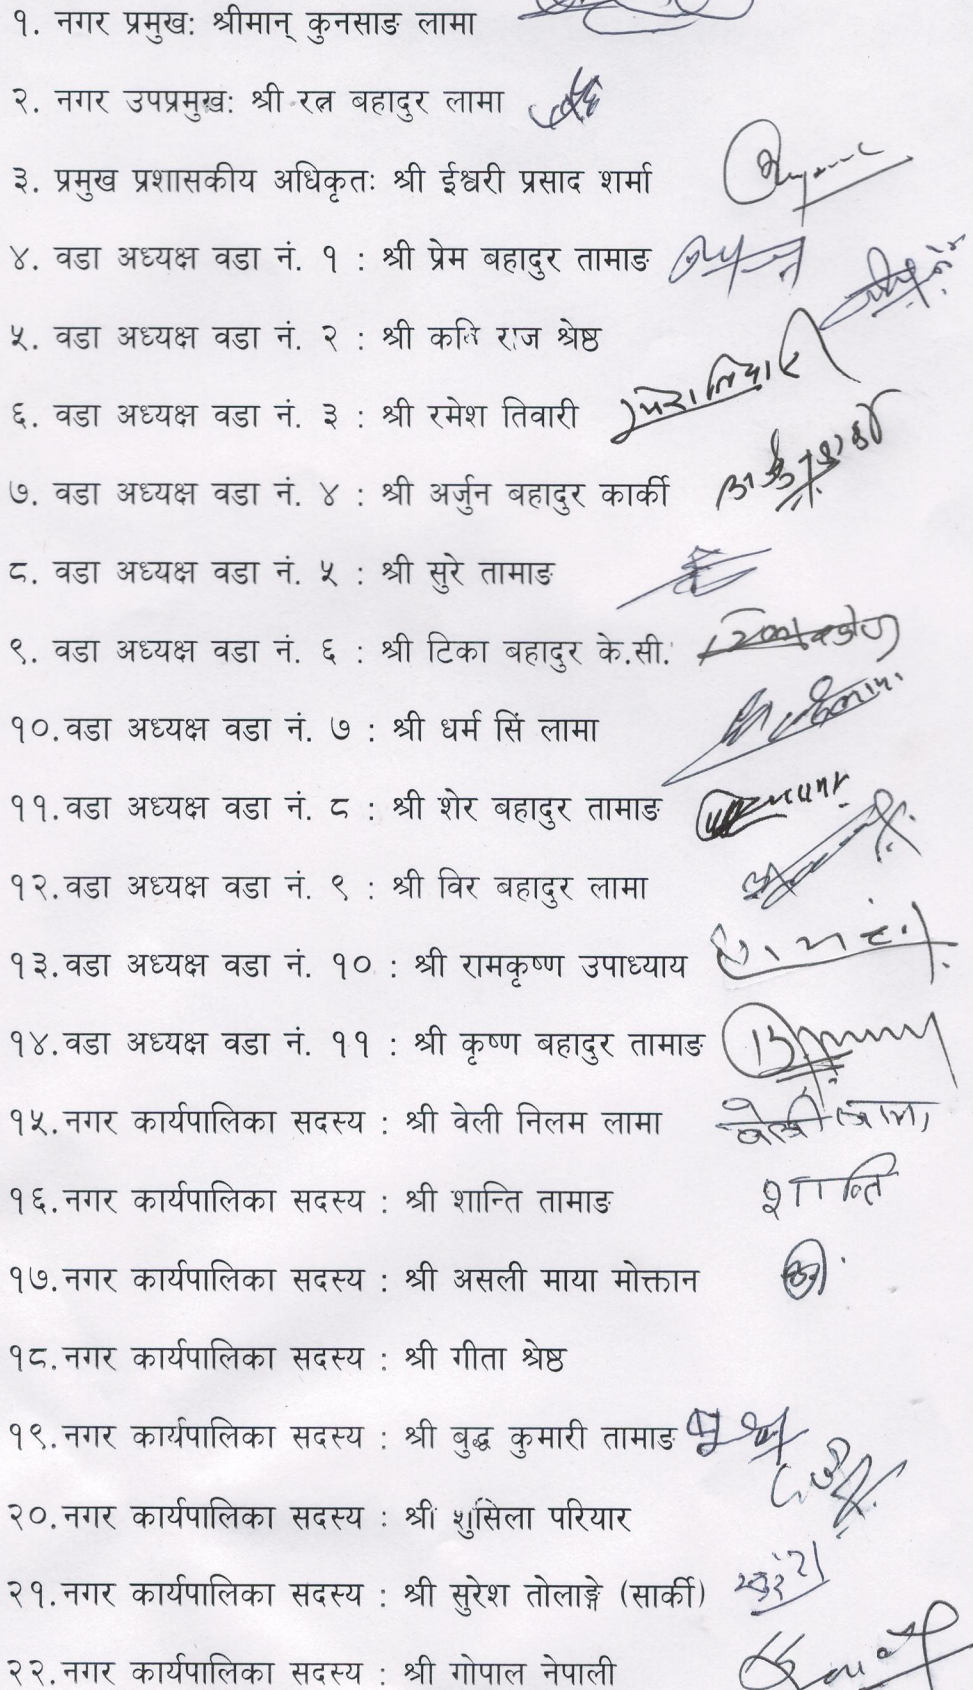 १. नगर प्रमुख: श्रीमान् कुनसाङ लामा
२. नगर उपप्रमुख: श्री रत्न बहादुर लामा
३. प्रमुख प्रशासकीय अधिकृतः श्री ईश्वरी प्रसाद शर्मा
४. वडा अध्यक्ष वडा नं. १ : श्री प्रेम बहादुर तामाङ
५. वडा अध्यक्ष वडा नं. २ : श्री राज श्रेष्ठ
६. वडा अध्यक्ष वडा नं. ३ : श्री रमेश तिवारी
७. वडा अध्यक्ष वडा नं. ४ : श्री अर्जुन बहादुर कार्की
८. वडा अध्यक्ष वडा नं. ५ : श्री सुरे तामाङ
९. वडा अध्यक्ष वडा नं. ६ : श्री टिका बहादुर के.सी.
१०.वडा अध्यक्ष वडा नं. ७ : श्री धर्म सिं लामा
११.वडा अध्यक्ष वडा नं. ८ : श्री शेर बहादुर तामाङ
१२.वडा अध्यक्ष वडा नं. ९ : श्री विर बहादुर लामा
१३.वडा अध्यक्ष वडा नं. १० : श्री रामकृष्ण उपाध्याय
१४.वडा अध्यक्ष वडा नं. ११ : श्री कृष्ण बहादुर तामाङ
१५.नगर कार्यपालिका सदस्य : श्री वेली निलम लामा
१६.नगर कार्यपालिका सदस्य : श्री शान्ति तामाङ शान्ति
१७.नगर कार्यपालिका सदस्य : श्री असली माया मोक्तान
१८.नगर कार्यपालिका सदस्य : श्री गीता श्रेष्ठ
१९.नगर कार्यपालिका सदस्य : श्री बुद्ध कुमारी तामाङ
२०.नगर कार्यपालिका सदस्य : श्री शुसिला परियार
२१.नगर कार्यपालिका सदस्य : श्री सुरेश तोलाङ्गे (सार्की)
२२.नगर कार्यपालिका सदस्य : श्री गोपाल नेपाली